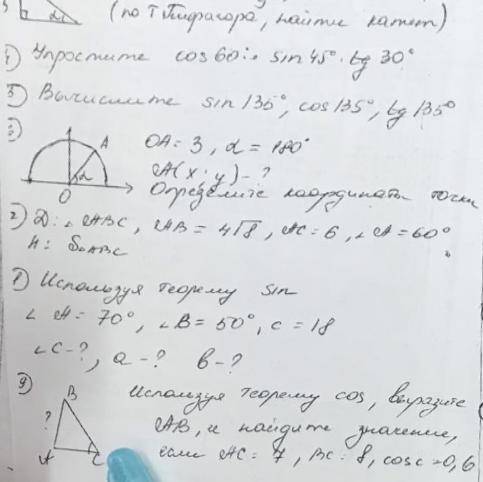 (по т Пифагора, найти катет)
4) Упростите cos 60° : sin 45° · tg 30°
5) Вычислите sin 135°, cos 135°, tg 135°
6)
A
α
O
OA = 3, α = 180°
A(x; y) - ?
Определите координаты точки
7) D: ∠ABC, AB = 4√8, AC = 6, ∠A = 60°
H: S ABC
8) Используя теорему sin
∠A = 70°, ∠B = 50°, c = 18
∠C - ?, a - ? b - ?
9)
B
?
A
C
Используя теорему cos, выразите
AB, и найдите значение,
если AC = 7, BC = 8, cos c = 0,6